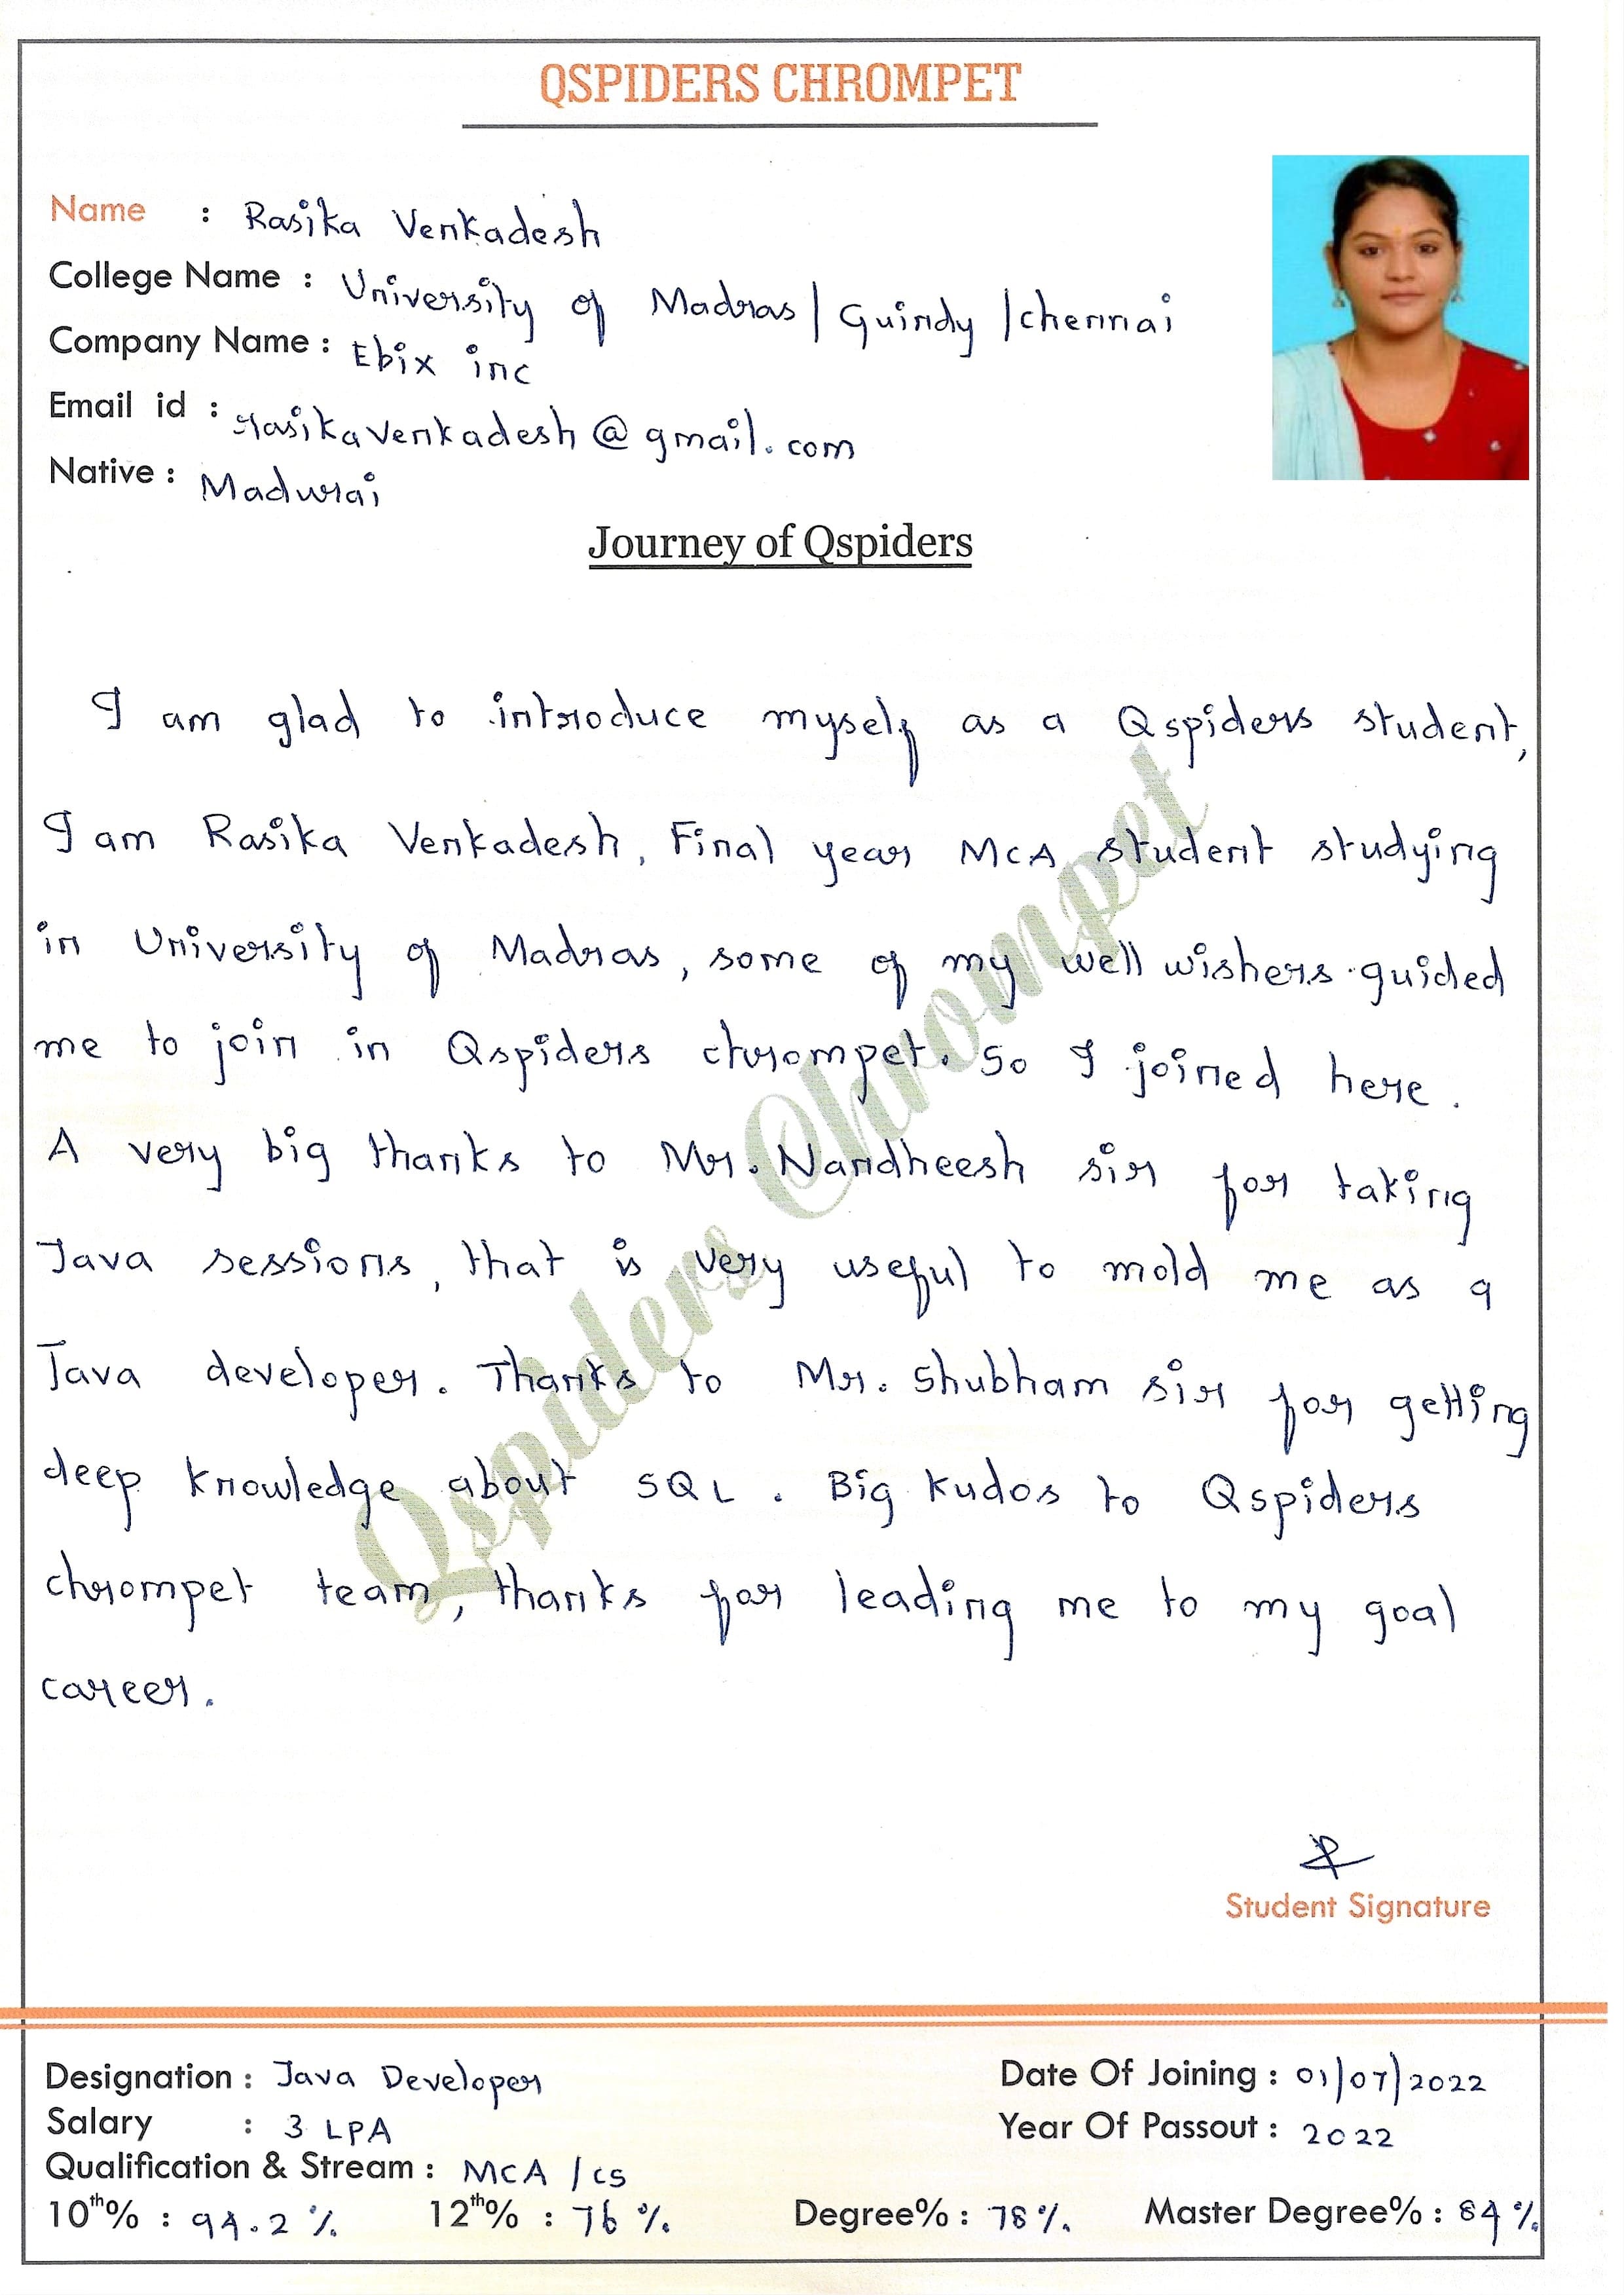 QSPIDERS CHROMPET
Name : Rasika Venkadesh
College Name : University of Madras | Guindy | chennai
Company Name : Ebix inc
Email id : rasikavenkadesh@gmail.com
Native : Madurai
Journey of Qspiders
I am glad to introduce myself as a Qspiders student,
I am Rasika Venkadesh, Final year MCA student studying
in University of Madras, some of my well wishers guided
me to join in Qspiders chrompet. So I joined here.
A very big thanks to Mr. Nandheesh sir for taking
Java sessions, that is very useful to mold me as a
Java developer. Thanks to Mr. Shubham sir for getting
deep knowledge about SQL. Big kudos to Qspiders
chrompet team, thanks for leading me to my goal
career.
Qspiders Chrompet
Student Signature
Designation : Java Developer Date Of Joining : 01/07/2022
Salary : 3 LPA Year Of Passout : 2022
Qualification & Stream : MCA / CS
10th% : 94.2 % 12th% : 76 % Degree% : 78 % Master Degree% : 84 %